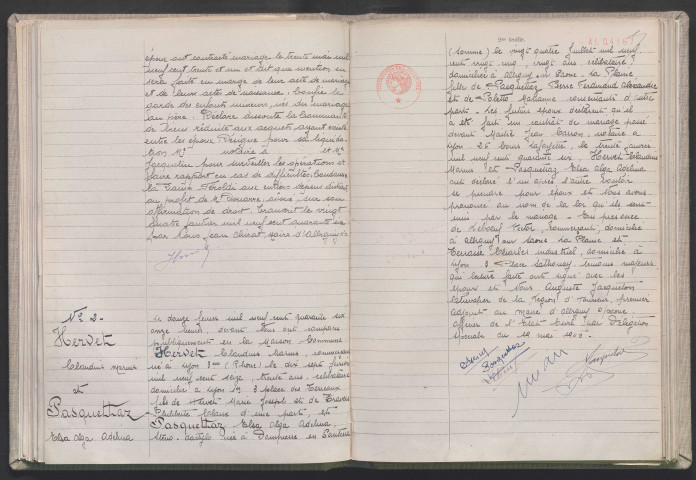 époux ont contracté mariage le trente mai mil
neuf cent trente et un et dit que mention en
sera faite en marge de leur acte de mariage
et de leurs actes de naissance. Confie la
garde des enfants mineurs, nés du mariage
au père. Déclare dissoute la Communauté
de biens réduite aux acquêts ayant existé
entre les époux
tion Me notaire à et Me
Jacquelin pour surveiller les opérations et
faire rapport en cas de difficultés. Condamne
la Dame aux entiers dépens distraits
au profit de Me avoué, sur son
affirmation de droit. Transcrit le vingt
quatre janvier mil neuf cent quarante six
par Nous, Jean Chirat, Maire d'Albigny s/s
No 2-
Hervet
Claudius Marius
et
Pasquettaz
Elsa Olga Adelina
Le douze février mil neuf cent quarante six
onze heures, devant Nous ont comparu
publiquement en la Maison Commune
HERVET Claudius Marius, commerçant
né à Lyon 3me (Rhône) le dix sept février
mil neuf cent seize, trente ans, célibataire
domicilié à Lyon 1er 3 place des Terreaux
fils de Hervet Marie Joseph et de
d'une part, et
PASQUETTAZ Elsa Olga Adelina
sténo-dactylo née à Dampierre en
(Somme) le vingt quatre juillet mil neuf
cent vingt cinq, vingt ans, célibataire
domiciliée à Albigny sur Saone - La Plaine
fille de Pasquettaz Pierre Ferdinand Alexandre
et de consentants d'autre
part. Les futurs époux déclarent qu'il
a été fait un contrat de mariage passé
devant Maître Jean notaire à
Lyon 26 Cours Lafayette, le trente janvier
mil neuf cent quarante six. Hervet Claudius
Marius et Pasquettaz Elsa Olga Adelina
ont déclaré l'un après l'autre vouloir
se prendre pour époux et Nous avons
prononcé au nom de la loi qu'ils sont
unis par le mariage - En présence
de Victor, commerçant, domicilié
à Albigny sur Saone La Plaine et
Terraise Charles industriel, domicilié à
Lyon 3 place Sathonay témoins majeurs
qui lecture faite ont signé avec les
époux et Nous Auguste Jacquelon
Chevalier de la Légion d'honneur, premier
adjoint au maire d'Albigny s/Saone
officier de l'Etat-Civil par Délégation
spéciale du 19 mai 19
Pasquettaz